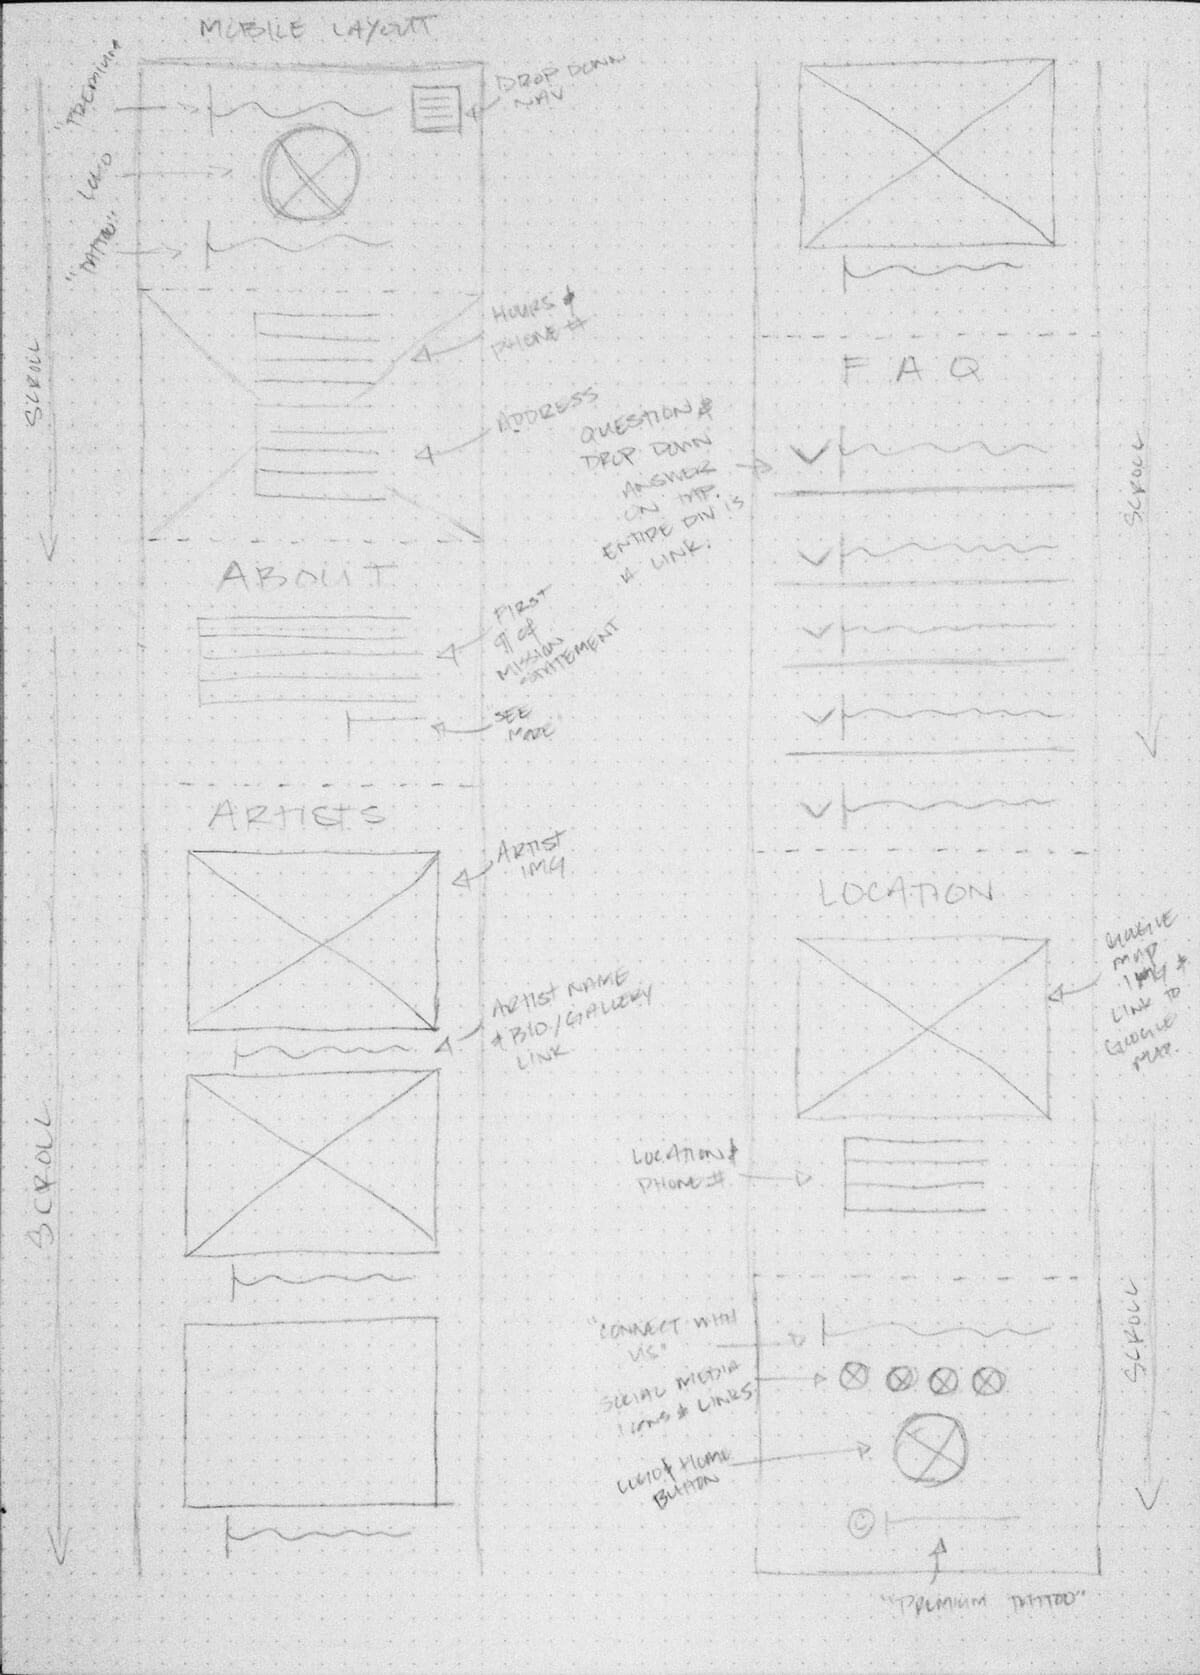 MOBILE LAYOUT
"PREMIUM
LOGO
TATTOO"
DROP DOWN
NAV
HOURS &
PHONE #
ADDRESS
SCROLL
ABOUT
FIRST
¶ of
MISSION
STATEMENT
SEE
MORE
ARTISTS
ARTIST
IMG
ARTIST NAME
& BIO/GALLERY
LINK
SCROLL
FAQ
QUESTION &
DROP DOWN
ANSWER
ON TAP.
ENTIRE DIV IS
A LINK.
SCROLL
LOCATION
GOOGLE
MAP
IMG &
LINK TO
GOOGLE
MAP.
LOCATION &
PHONE #
"CONNECT WITH
US"
SOCIAL MEDIA
ICONS & LINKS
LOGO & HOME
BUTTON
SCROLL
©
"PREMIUM TATTOO"